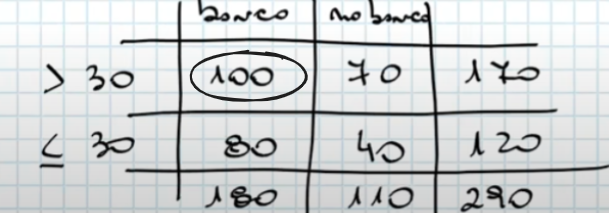 banco no banco
> 30 100 70 170
≤ 30 80 40 120
180 110 290